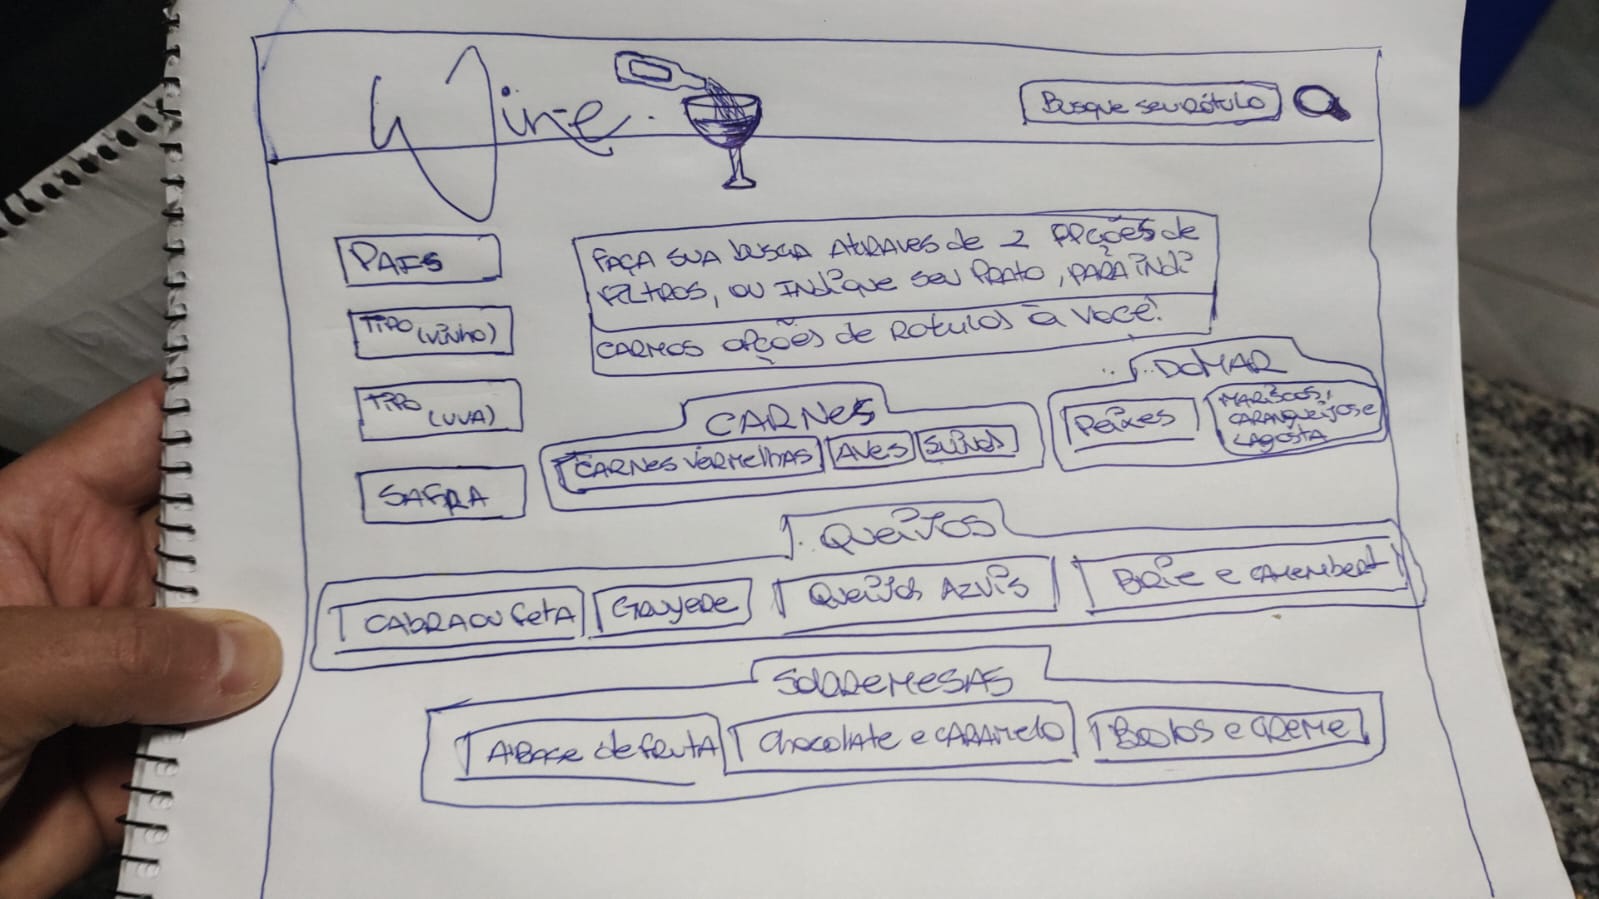 Wine.
Busque seu Rótulo
PAIS
TIPO (VINHO)
TIPO (UVA)
SAFRA
FAÇA SUA busca ATRAVES de 2 OPÇÕES de
FILTROS, OU INdiQUE SEU PRATO, PARA indi
CARMOS OPÇÕES de ROTULOS À VOCÊ!
CARNES
CARNES VERMELHAS
AVES
SUÍNOS
DO MAR
Peixes
MARISCOS,
CARANGUEIJOS e
LAGOSTA
QUEIJOS
CABRA OU FETA
Gruyere
QUEIJOS AZUIS
BRIE e CAMEMBERT
SOBREMESAS
A BASE de FRUTA
Chocolate e CARAMELO
Bolos e CREME